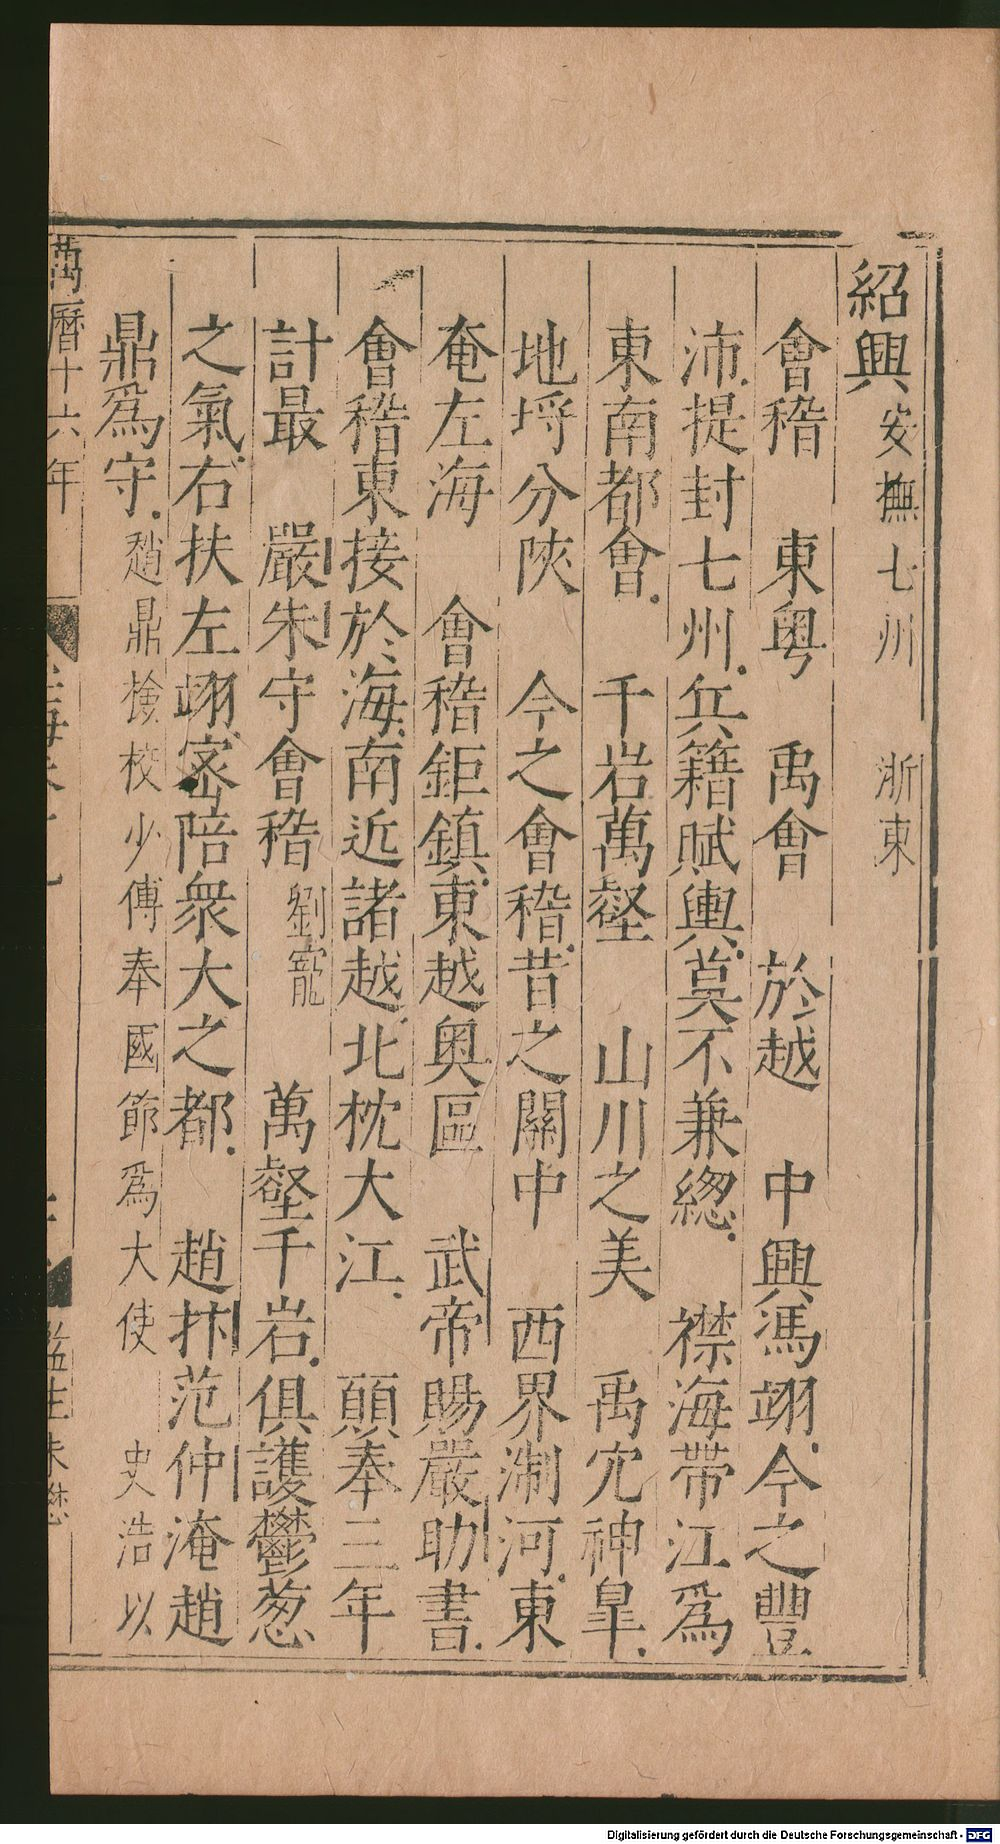 紹興 安撫七州 浙東
會稽 東粤 禹會 於越 中興馮翊今之豐
沛提封七州兵籍賦輿莫不兼緫 襟海帶江爲
東南都會 千岩萬壑 山川之美 禹穴神臯
地埒分陝 今之會稽昔之關中 西界淛河東
奄左海 會稽鉅鎮東越奥區 武帝賜嚴助書
會稽東接於海南近諸越北枕大江 願奉三年
計最 嚴朱守會稽 劉寵 萬壑千岩俱護鬱葱
之氣右扶左翊宻陪衆大之都 趙抃范仲淹趙
鼎爲守 趙鼎檢校少傅奉國節爲大使 史浩以
萬曆十六年
Digitalisierung gefördert durch die Deutsche Forschungsgemeinschaft - DFG